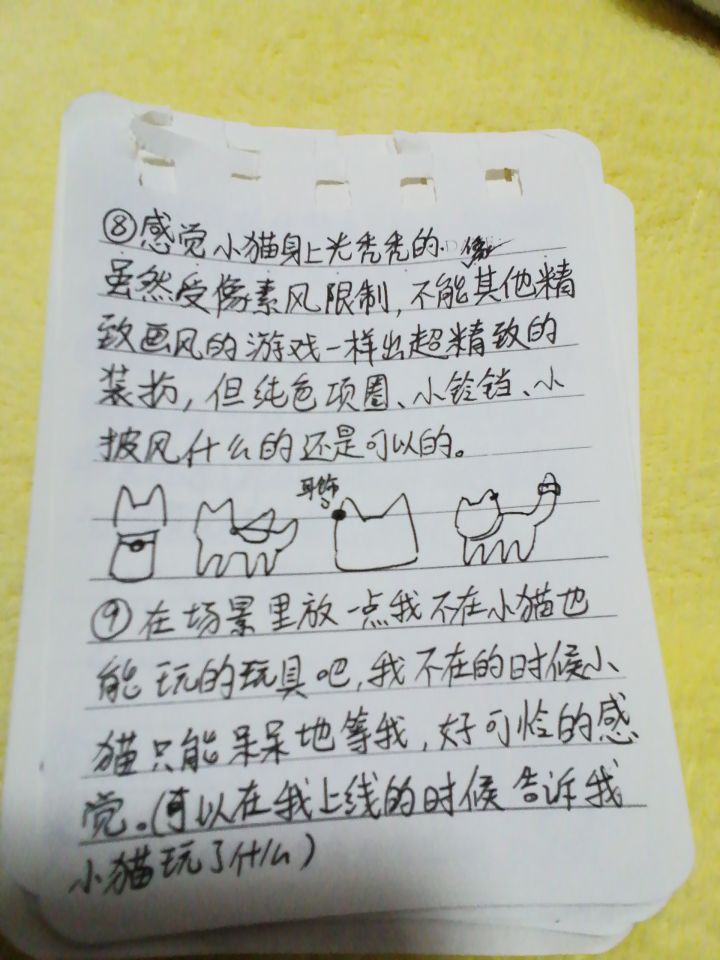 ⑧感觉小猫身上光秃秃的.
虽然受像素风限制,不能其他精
致画风的游戏一样出超精致的
装扮,但纯色项圈、小铃铛、小
披风什么的还是可以的。
耳饰
⑨在场景里放一点我不在小猫也
能玩的玩具吧,我不在的时候小
猫只能呆呆地等我,好可怜的感
觉。(可以在我上线的时候告诉我
小猫玩了什么)